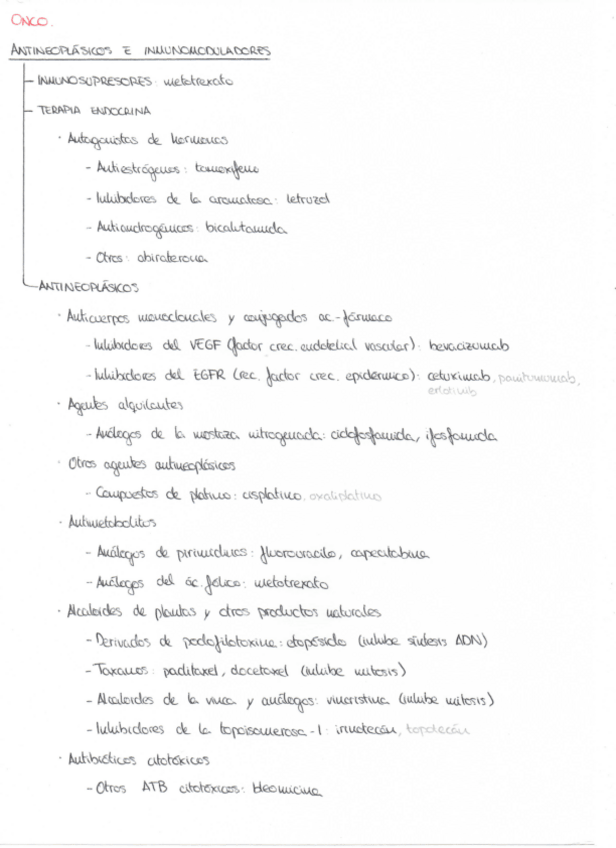 ONCO.
ANTINEOPLÁSICOS E INMUNOMODULADORES
- INMUNOSUPRESORES: metotrexato
- TERAPIA ENDOCRINA
· Antagonistas de hormonas
- Antiestrógenos: tamoxifeno
- Inhibidores de la aromatasa: letrozol
- Antiandrogénicos: bicalutamida
- Otros: abiraterona
- ANTINEOPLÁSICOS
· Anticuerpos monoclonales y conjugados ac-fármaco
- Inhibidores del VEGF (factor crec. endotelial vascular): bevacizumab
- Inhibidores del EGFR (rec. factor crec. epidérmico): cetuximab, panitumumab,
erlotinib
· Agentes alquilantes
- Análogos de la mostaza nitrogenada: ciclofosfamida, ifosfamida
· Otros agentes antineoplásicos
- Compuestos de platino: cisplatino, oxaliplatino
· Antimetabolitos
- Análogos de pirimidinas: fluorouracilo, capecitabina
- Análogos del ác. fólico: metotrexato
· Alcaloides de plantas y otros productos naturales
- Derivados de podofilotoxina: etopósido (inhibe síntesis ADN)
- Taxanos: paclitaxel, docetaxel (inhibe mitosis)
- Alcaloides de la vinca y análogos: vincristina (inhibe mitosis)
- Inhibidores de la topoisomerasa-1: irinotecán, topotecán
· Antibióticos citotóxicos
- Otros ATB citotóxicos: bleomicina